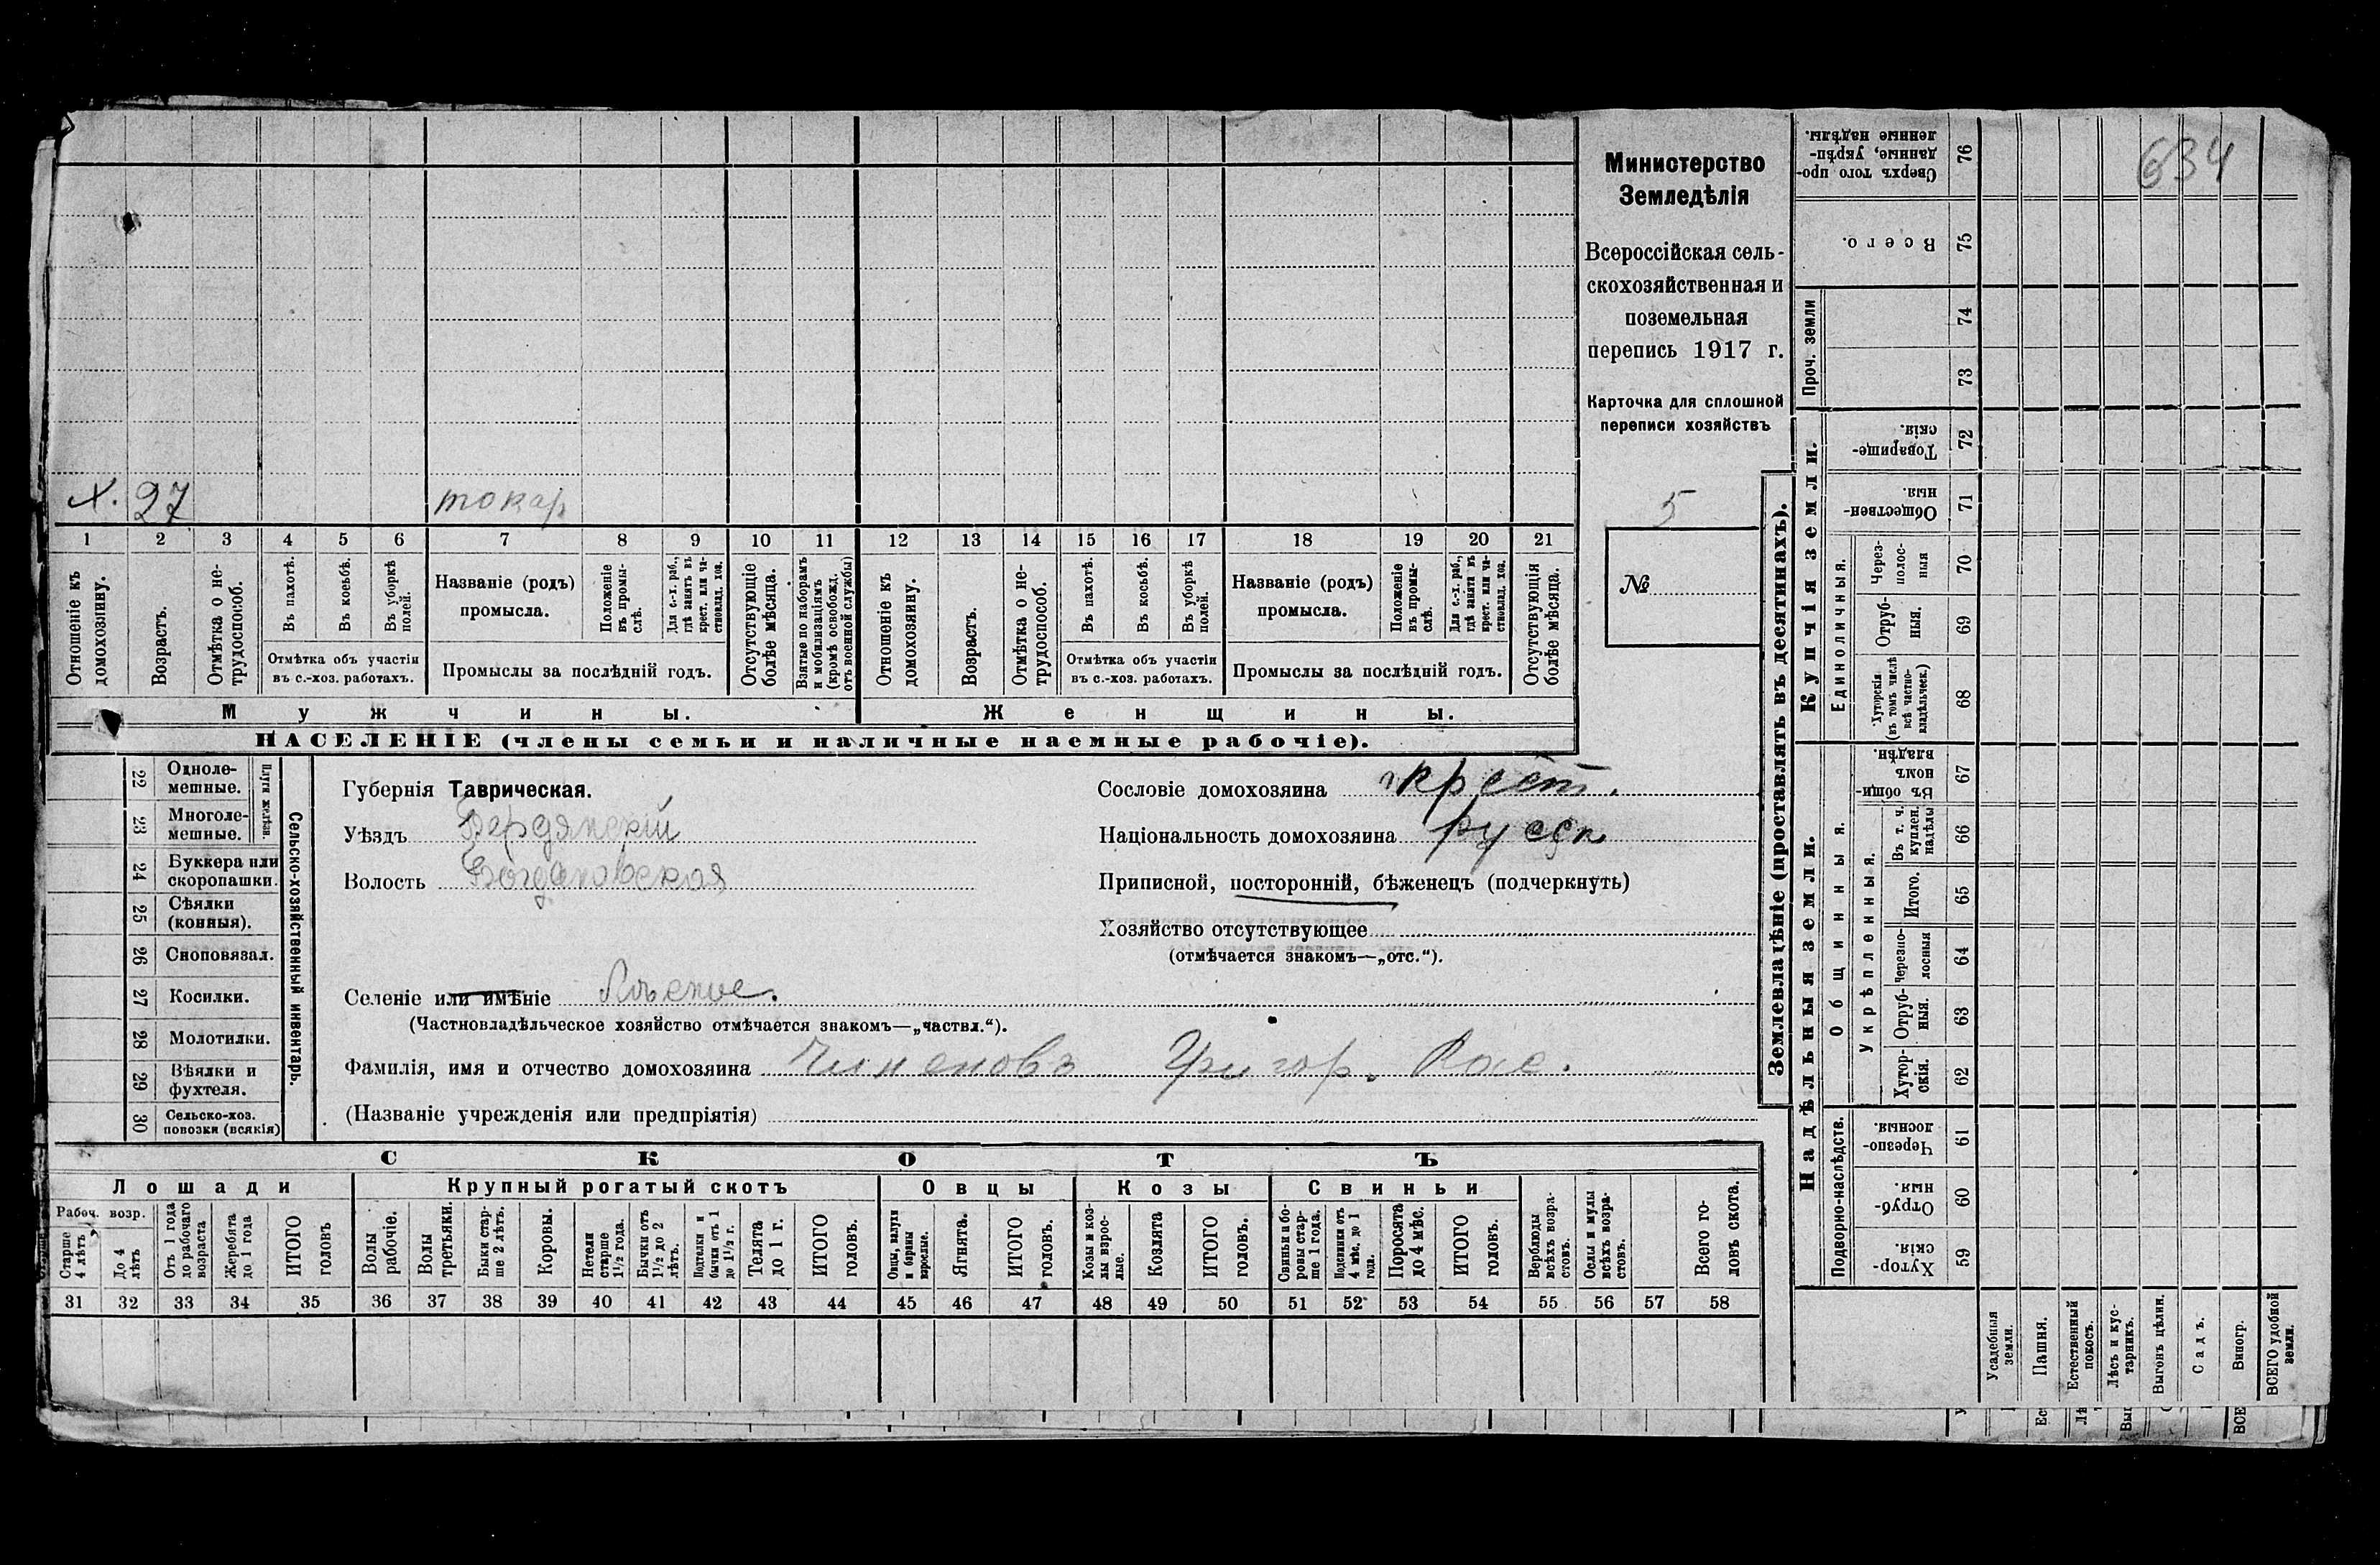 634
Министерство
Земледѣлія
Всероссійская сель-
скохозяйственная и
поземельная
перепись 1917 г.
Карточка для сплошной
переписи хозяйствъ
5
№
х. 27 токар
1 2 3 4 5 6 7 8 9 10 11 12 13 14 15 16 17 18 19 20 21
Отношеніе къ домохозяину.
Возрастъ.
Отмѣтка о не-трудоспособ.
Въ пахотѣ.
Въ косьбѣ.
Въ уборкѣ полей.
Отмѣтка объ участіи
въ с.-хоз. работахъ.
Названіе (родъ)
промысла.
Положеніе въ промы-слѣ.
Для с.-х. раб., гдѣ занятъ въ крест. или ча-стновлад. хоз.
Промыслы за послѣдній годъ.
Отсутствующіе болѣе мѣсяца.
Взятые по наборамъ и мобилизаціямъ (кромѣ освобожд. отъ военной службы)
Отношеніе къ домохозяину.
Возрастъ.
Отмѣтка о не-трудоспособ.
Въ пахотѣ.
Въ косьбѣ.
Въ уборкѣ полей.
Отмѣтка объ участіи
въ с.-хоз. работахъ.
Названіе (родъ)
промысла.
Положеніе въ промы-слѣ.
Для с.-х. раб., гдѣ занята въ крест. или ча-стновлад. хоз.
Промыслы за послѣдній годъ.
Отсутствующія болѣе мѣсяца.
Мужчины. Женщины.
НАСЕЛЕНІЕ (члены семьи и наличные наемные рабочіе).
Сельско-хозяйственный инвентарь.
Плуги желѣзн.
22 Одноле-мешные.
23 Многоле-мешные.
24 Буккера или скоропашки.
25 Сѣялки (конныя).
26 Сноповязал.
27 Косилки.
28 Молотилки.
29 Вѣялки и фухтеля.
30 Сельско-хоз. повозки (всякія)
Губернія Таврическая.
Уѣздъ Бердянскій
Волость Богдановская
Сословіе домохозяина крест.
Національность домохозяина русск
Приписной, посторонній, бѣженецъ (подчеркнуть)
Хозяйство отсутствующее
(отмѣчается знакомъ—„отс.“).
Селеніе или имѣніе
(Частновладѣльческое хозяйство отмѣчается знакомъ—„частвл.“).
Фамилія, имя и отчество домохозяина Григор.
(Названіе учрежденія или предпріятія)
СКОТЪ
Лошади Крупный рогатый скотъ Овцы Козы Свиньи
Рабоч. возр.
Старше 4 лѣтъ
До 4 лѣтъ
Отъ 1 года до рабочаго возраста
Жеребята до 1 года
ИТОГО головъ
Волы рабочіе.
Волы третьяки.
Быки стар-ше 2 лѣтъ.
Коровы.
Нетели старше 1½ года.
Бычки отъ 1½ до 2 лѣтъ.
Подтелки и бычки отъ 1 до 1½ г.
Телята до 1 г.
ИТОГО головъ.
Овцы, валухи и бараны взрослые.
Ягнята.
ИТОГО головъ.
Козы и коз-лы взрос-лые.
Козлята
ИТОГО головъ.
Свиньи и бо-ровы стар-ше 1 года.
Подсвинки отъ 4 мѣс. до 1 года.
Поросята до 4 мѣс.
ИТОГО головъ.
Верблюды всѣхъ возра-стовъ.
Ослы и мулы всѣхъ возра-стовъ.
Всего го-ловъ скота.
31 32 33 34 35 36 37 38 39 40 41 42 43 44 45 46 47 48 49 50 51 52 53 54 55 56 57 58
Землевладѣніе (проставлять въ десятинахъ).
Купчія земли.
Надѣльныя земли.
Проч. земли
Единоличныя.
Общинныя.
Укрѣпленныя.
Подворно-наслѣдств.
76 Сверхъ того про-данные, укрѣп-ленные надѣлы.
75 Всего.
74
73
72 Товарище-скія.
71 Обществен-ныя.
70 Через-полос-ныя
69 Отруб-ныя.
68 Хуторскія (въ томъ числѣ всѣ частно-владѣльческ.)
67 Въ общин-номъ владѣн.
66 Въ т. ч. куплен. надѣлы
65 Итого.
64 Черезпо-лосныя
63 Отруб-ныя.
62 Хутор-скія.
61 Черезпо-лосныя.
60 Отруб-ныя.
59 Хутор-скія.
Усадебныя земли.
Пашня.
Естественный покосъ.
Лѣсъ и кус-тарникъ.
Выгонъ цѣлин.
Садъ.
Виногр.
ВСЕГО удобной земли.